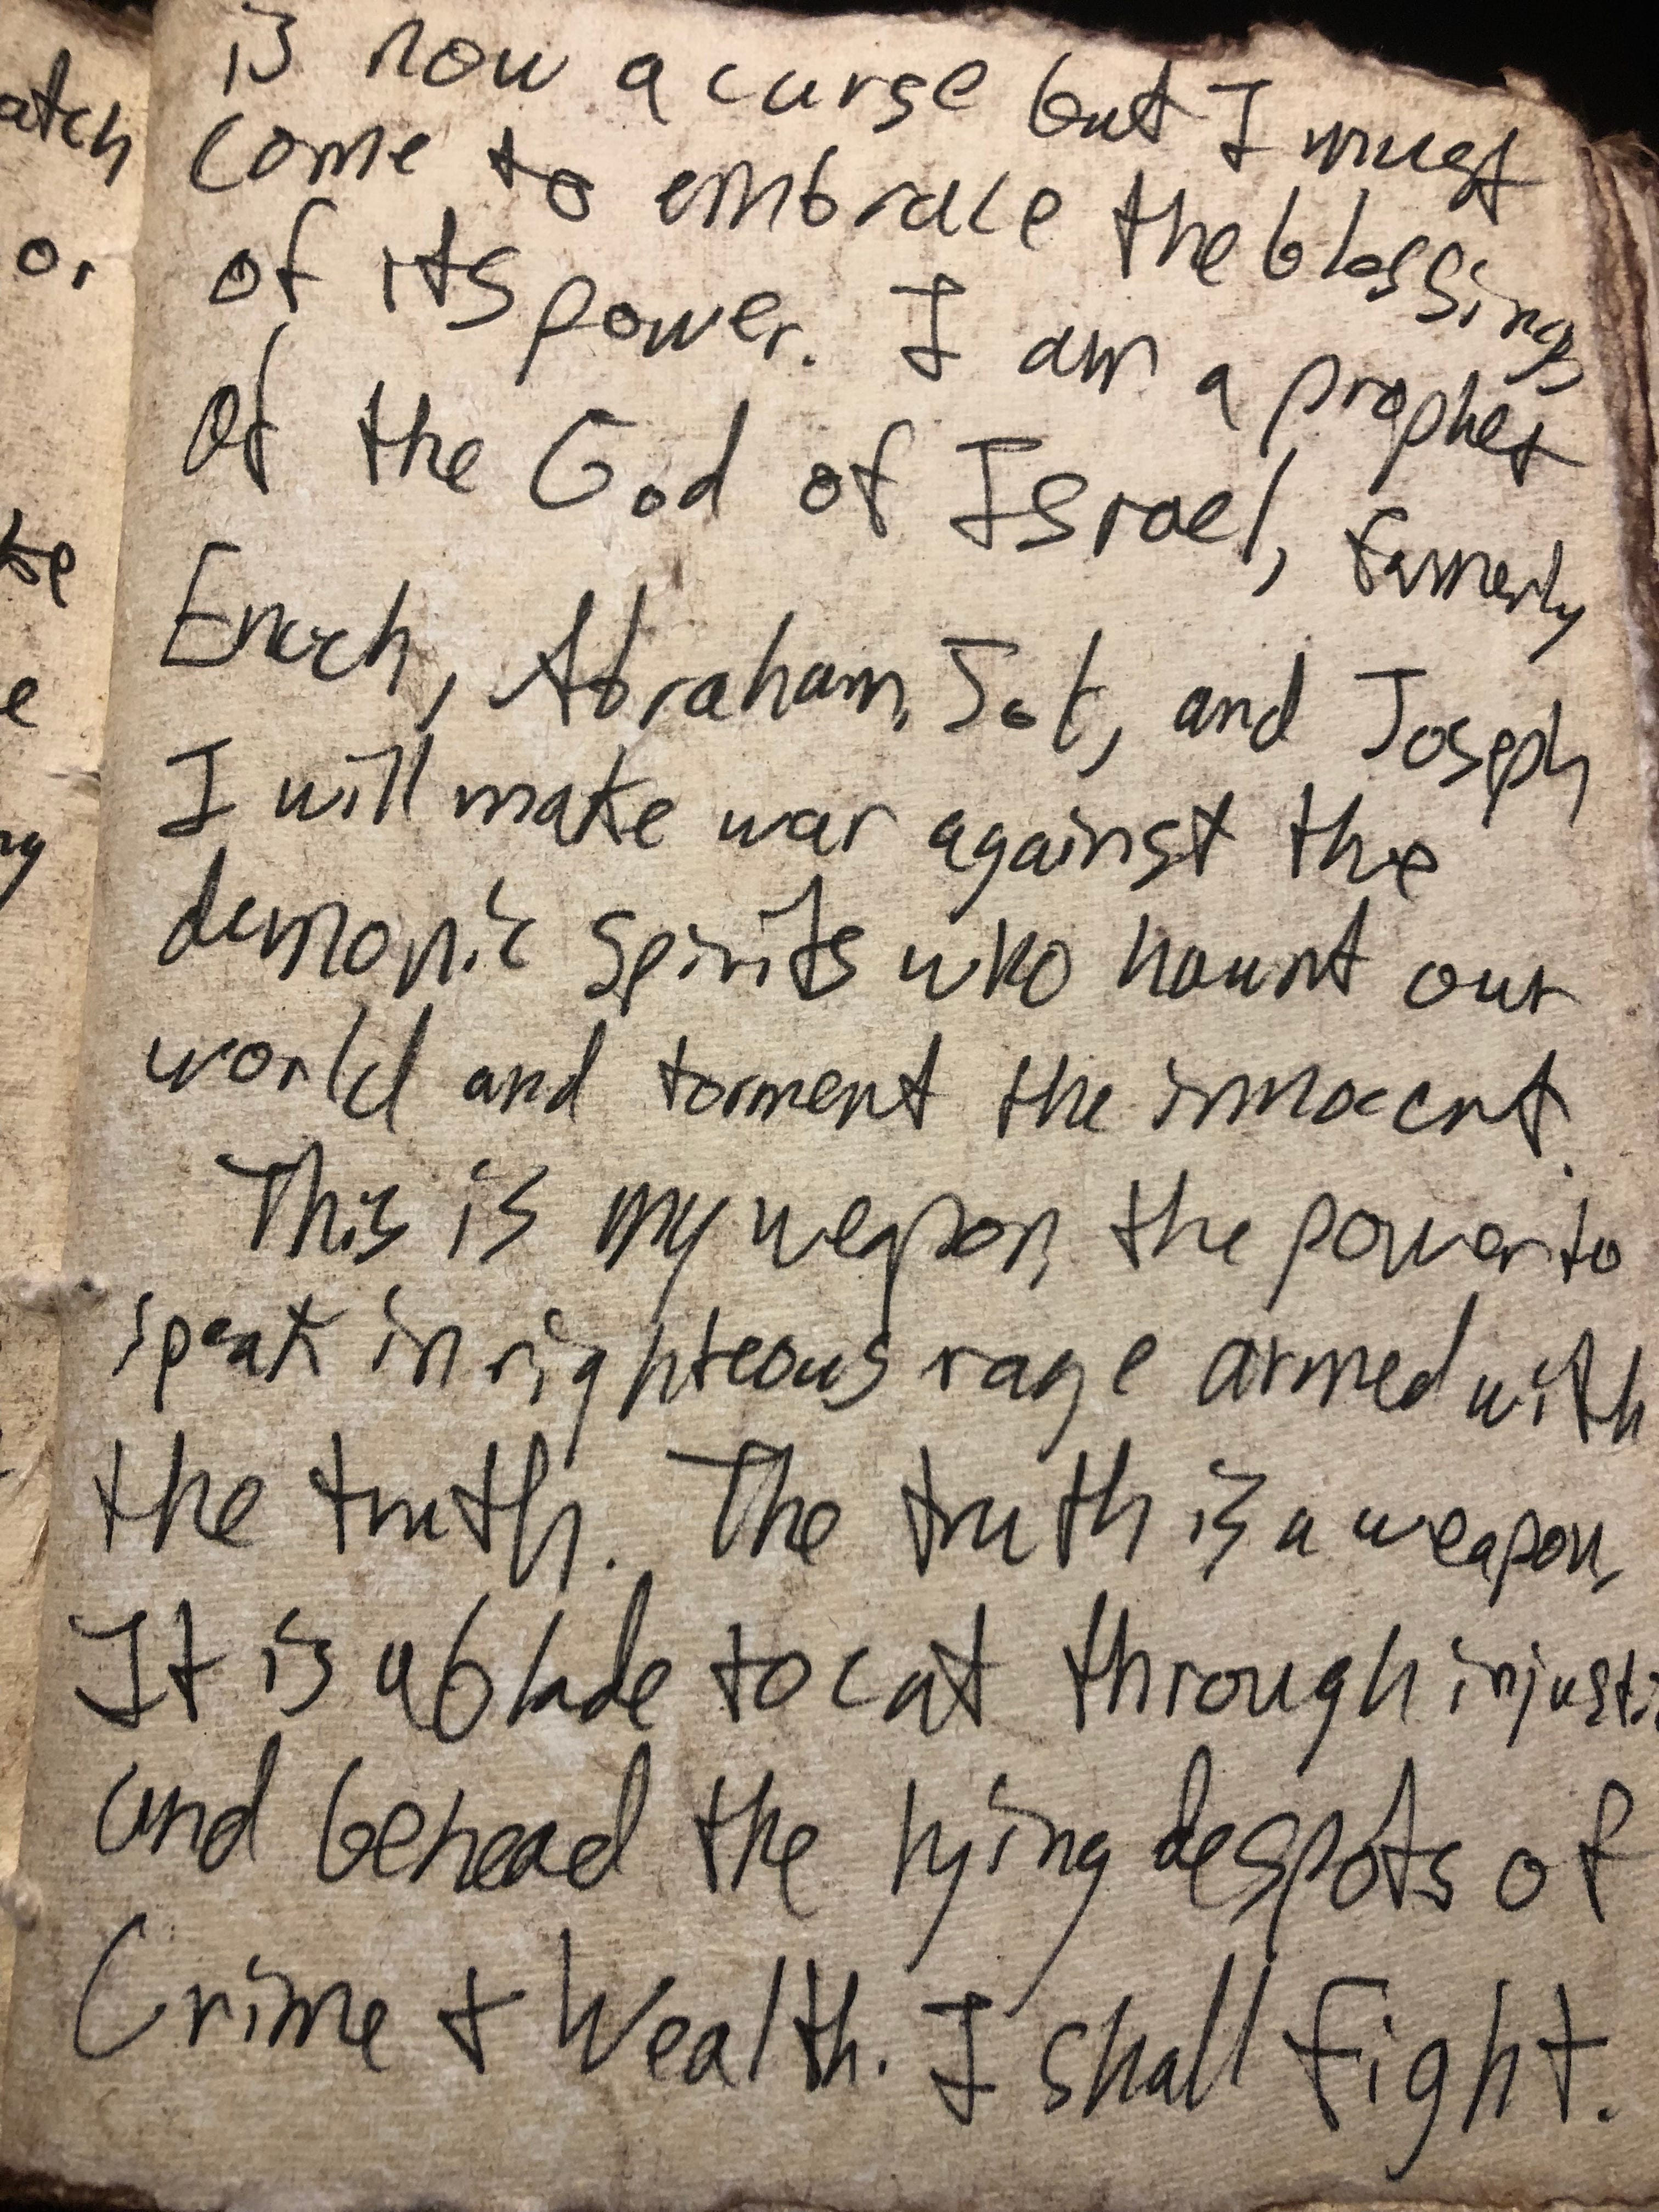 is now a curse but I must
come to embrace the blessings
of its power. I am a prophet
of the God of Israel, formerly
Enoch, Abraham, Job, and Joseph
I will make war against the
demonic spirits who haunt our
world and torment the innocent.
This is my weapon, the power to
speak in righteous rage armed with
the truth. The truth is a weapon,
It is a blade to cut through injusti
and behead the lying despots of
Crime + Wealth. I shall fight.